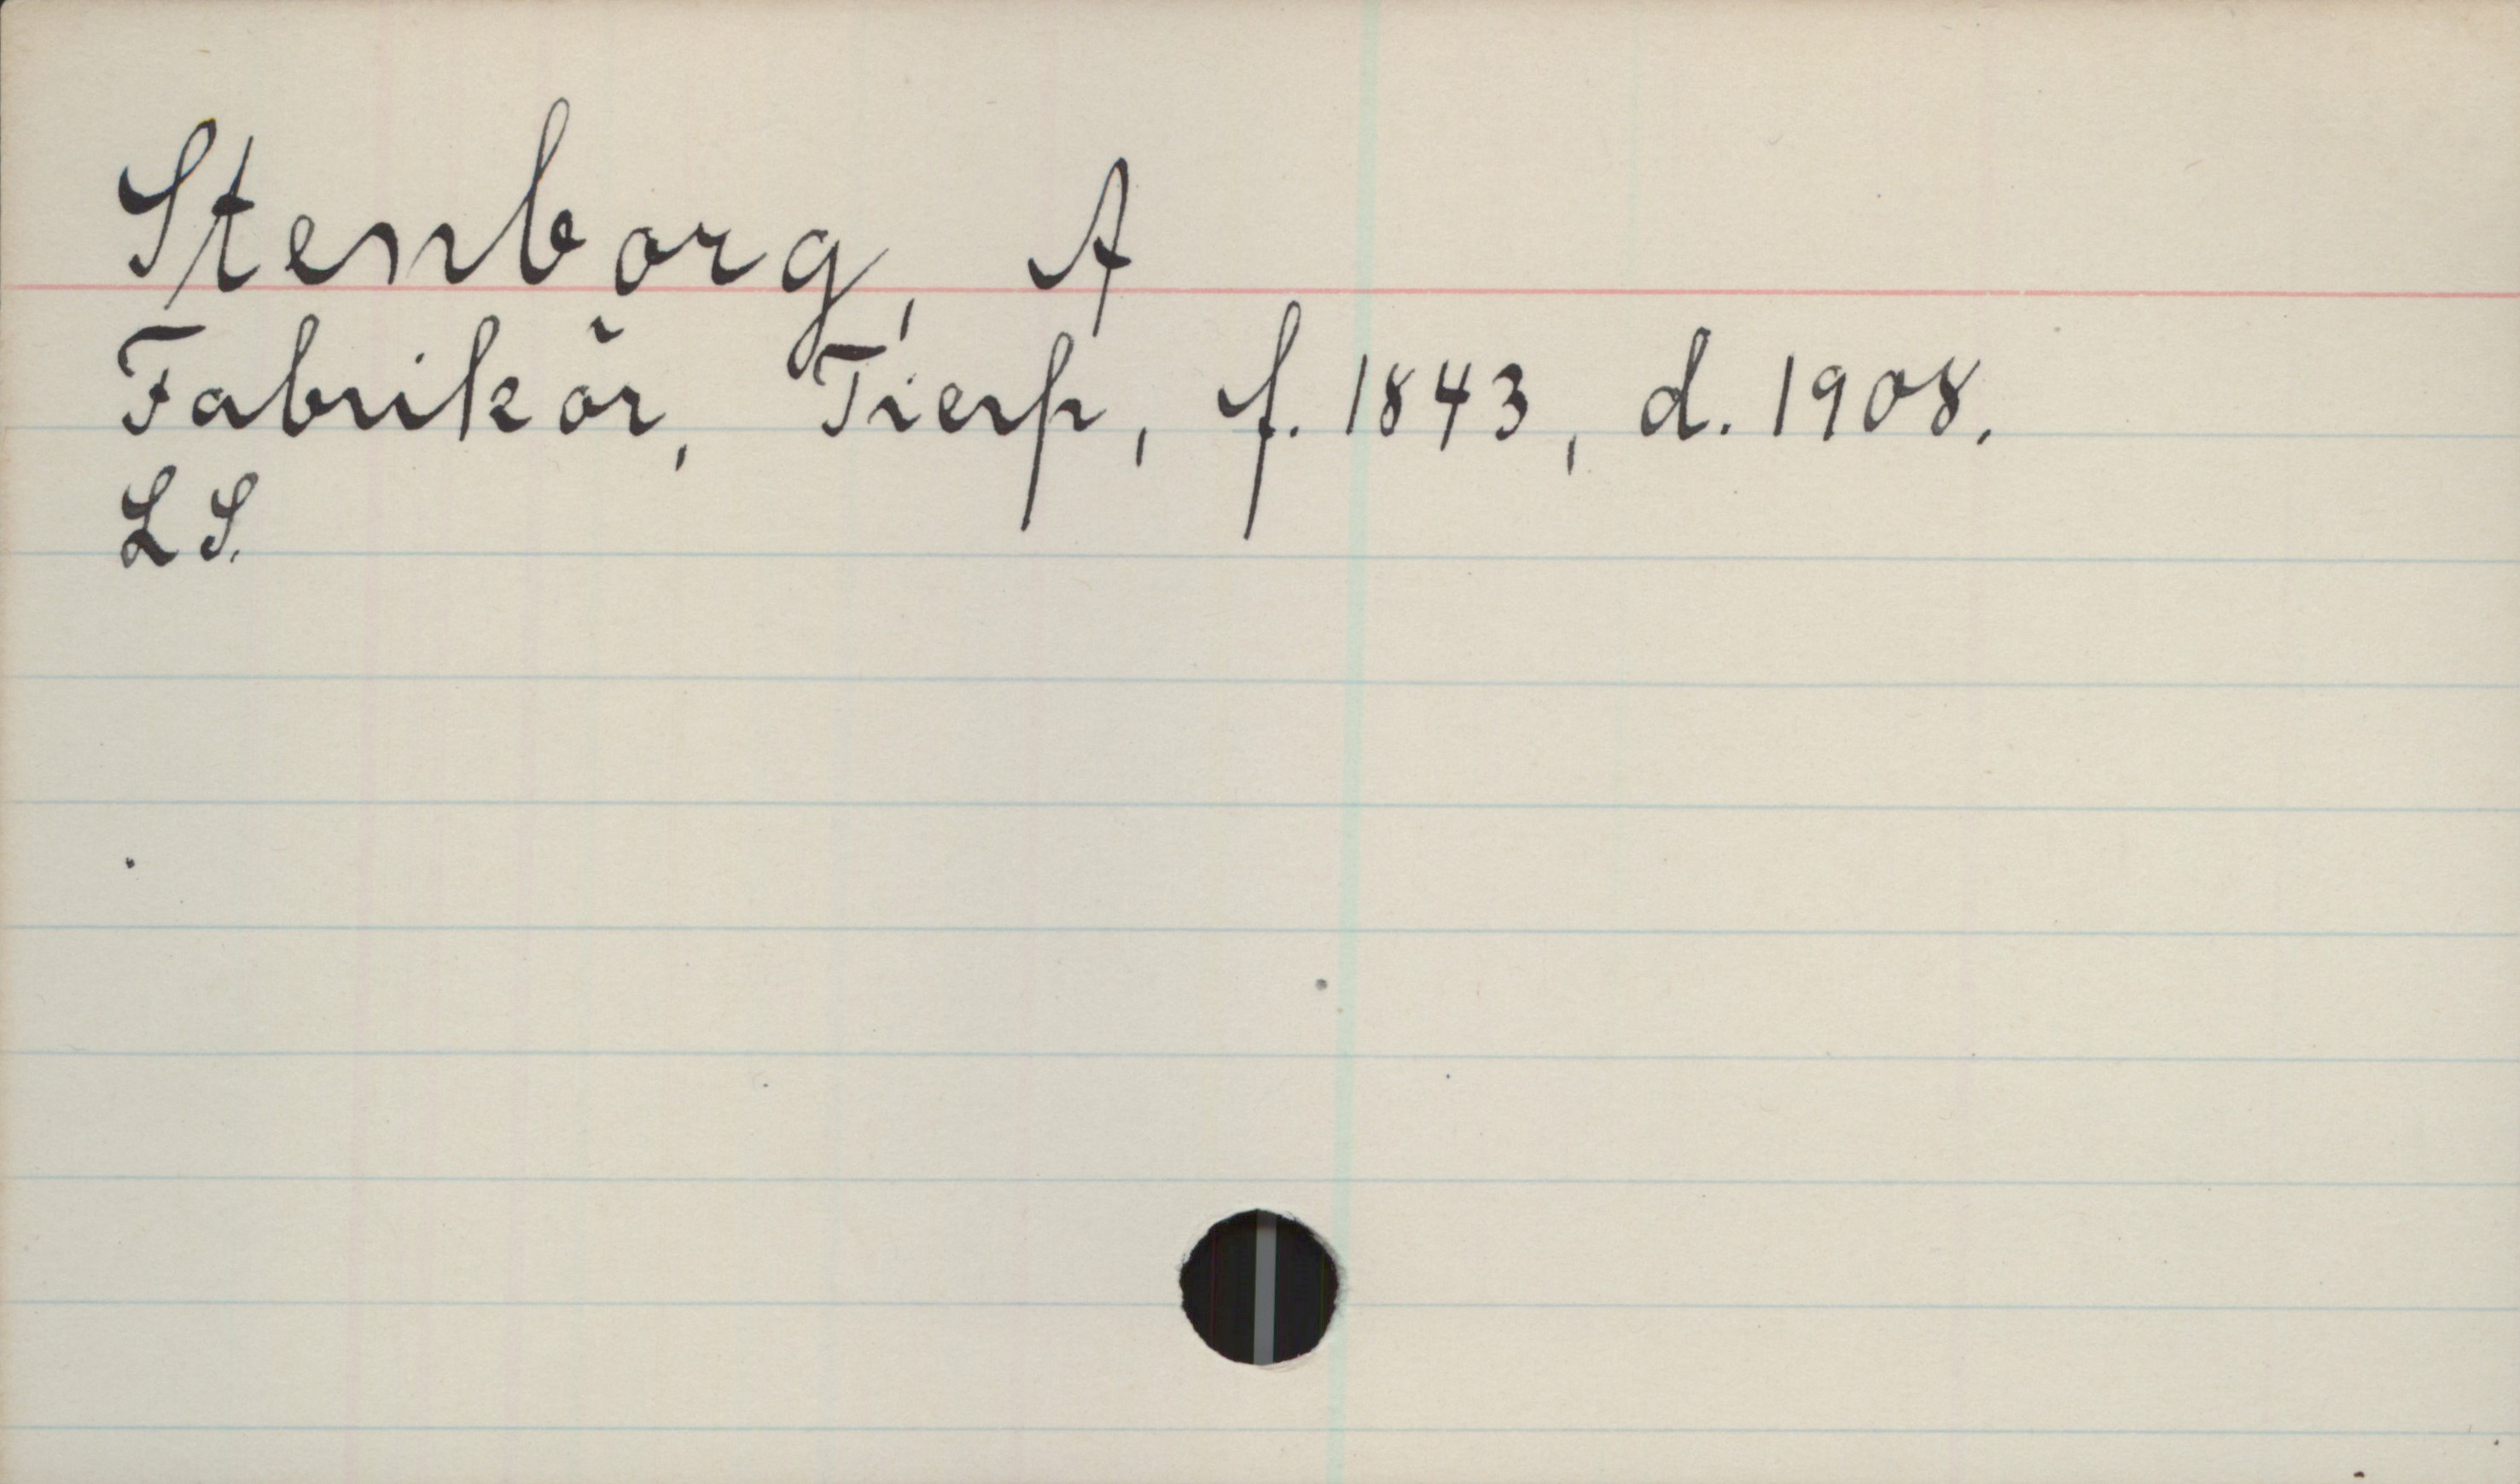 Stenborg, A
Fabrikör, Tierp, f. 1843, d. 1908.
LS.